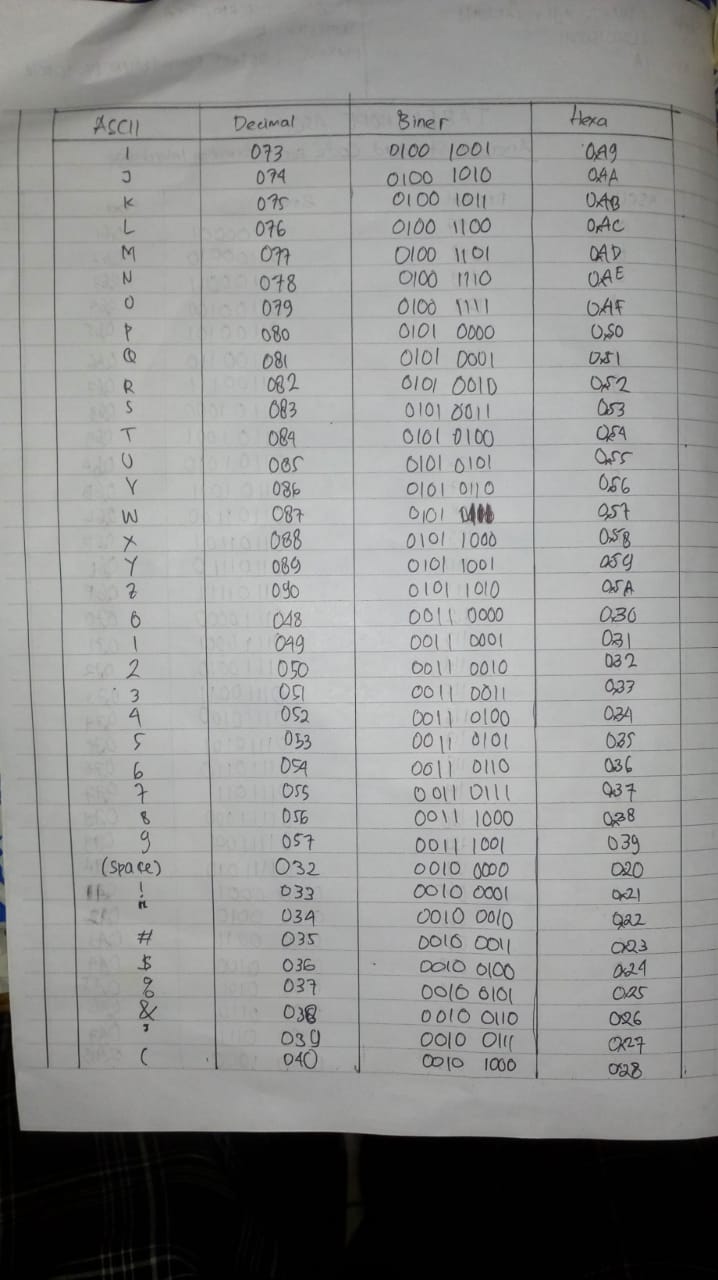 ASCII Decimal Biner Hexa
I 073 0100 1001 0x49
J 074 0100 1010 0x4A
K 075 0100 1011 0x4B
L 076 0100 1100 0x4C
M 077 0100 1101 0x4D
N 078 0100 1110 0x4E
O 079 0100 1111 0x4F
P 080 0101 0000 0x50
Q 081 0101 0001 0x51
R 082 0101 0010 0x52
S 083 0101 0011 0x53
T 084 0101 0100 0x54
U 085 0101 0101 0x55
Y 086 0101 0110 0x56
W 087 0101 0x57
X 088 0101 1000 0x58
Y 089 0101 1001 0x59
Z 090 0101 1010 0x5A
0 048 0011 0000 0x30
1 049 0011 0001 0x31
2 050 0011 0010 0x32
3 051 0011 0011 0x33
4 052 0011 0100 0x34
5 053 0011 0101 0x35
6 054 0011 0110 0x36
7 055 0011 0111 0x37
8 056 0011 1000 0x38
9 057 0011 1001 0x39
(space) 032 0010 0000 0x20
! 033 0010 0001 0x21
" 034 0010 0010 0x22
# 035 0010 0011 0x23
$ 036 0010 0100 0x24
% 037 0010 0101 0x25
& 038 0010 0110 0x26
' 039 0010 0111 0x27
( 040 0010 1000 0x28